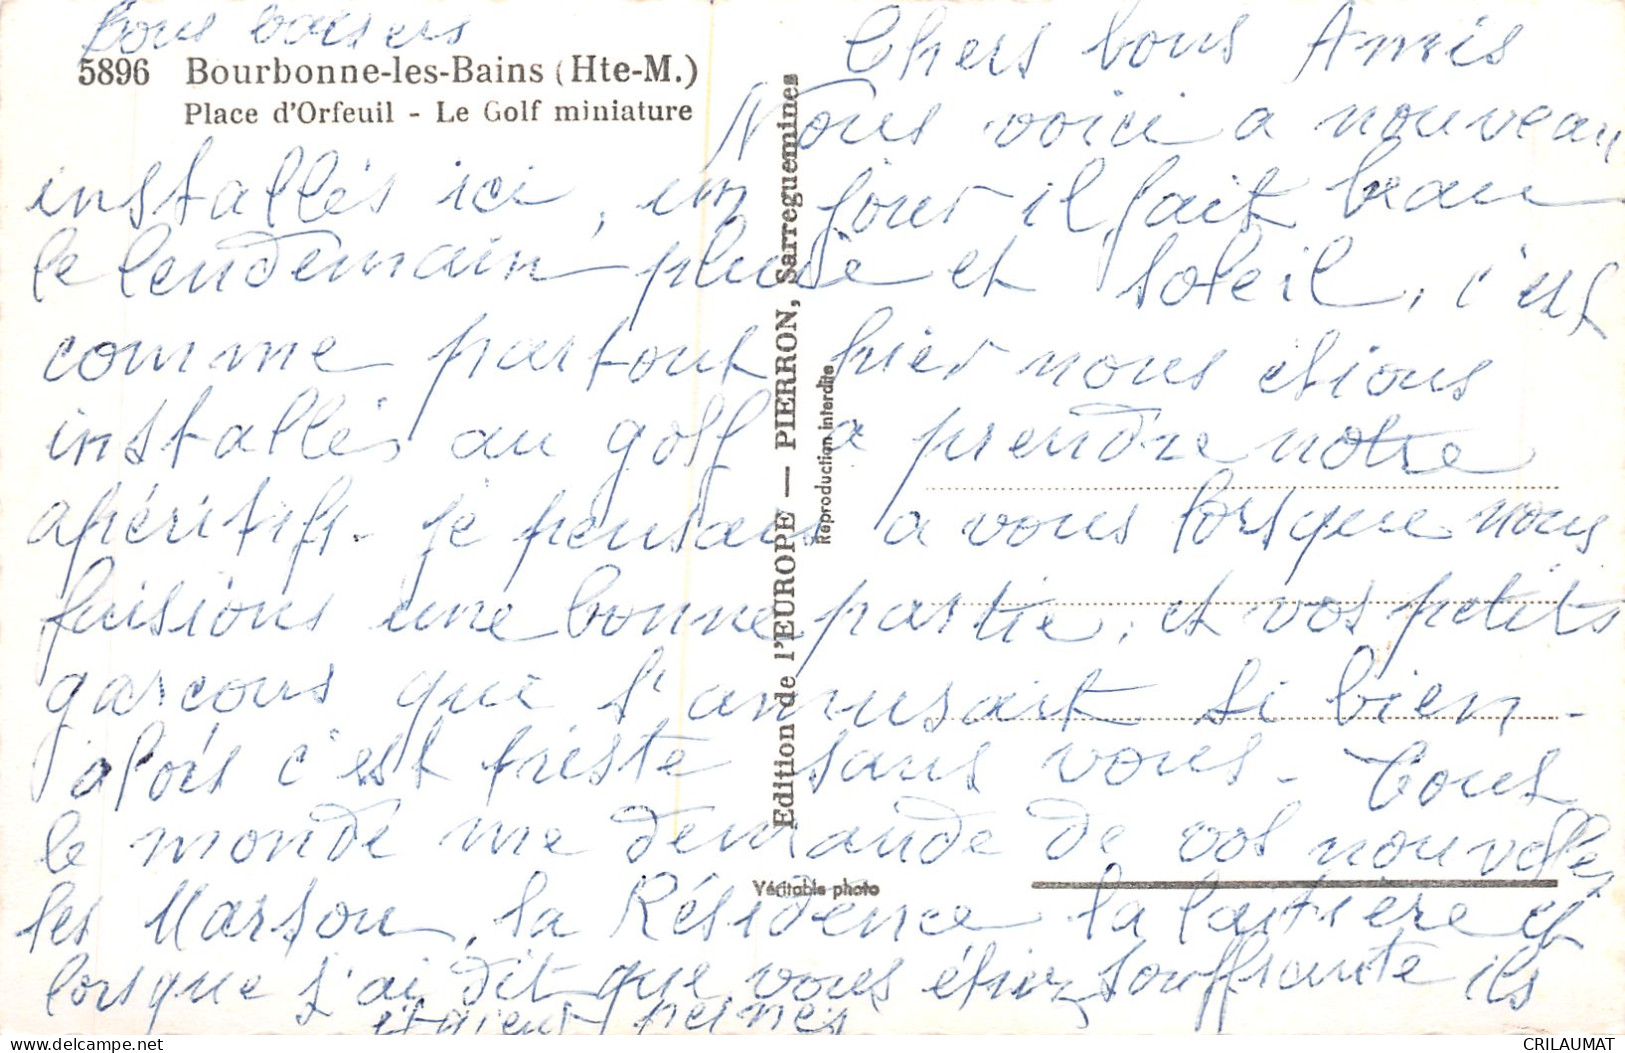 Bons baisers
5896 Bourbonne-les-Bains (Hte-M.)
Place d'Orfeuil - Le Golf miniature
Chers bons Amis
Nous voici a nouveau
installés ici, un jour il fait beau
le lendemain pluie et soleil, c'est
comme partout hier nous etions
installés au golf a prendre notre
apéritifs. je pensais a vous lorsque nous
faisions une bonne partie, et vos petits
garcons que s'amusait si bien -
alors c'est triste sans vous - Tous
le monde me demande de vos nouvelles
les Marson, la Résidence la laitière et
lorsque j'ai dit que vous étiez souffrante ils
étaient peinés
Edition de l'EUROPE — PIERRON, Sarreguemines
Reproduction interdite
Véritable photo
CRILAUMAT